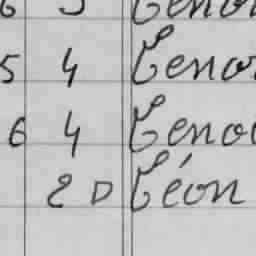 6 5 Lenor
5 4 Lenor
6 4 Lenor
2 D Léon